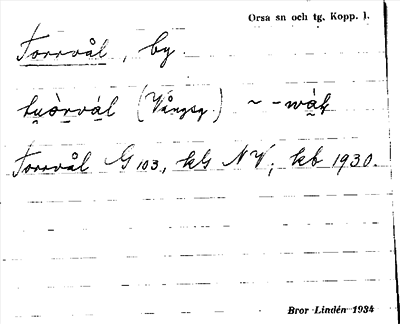 Orsa sn och tg, Kopp. l.
Torrvål, by.
(Vångsg)
Torrvål G 103, kG NV, kb 1930.
Bror Lindén 1934